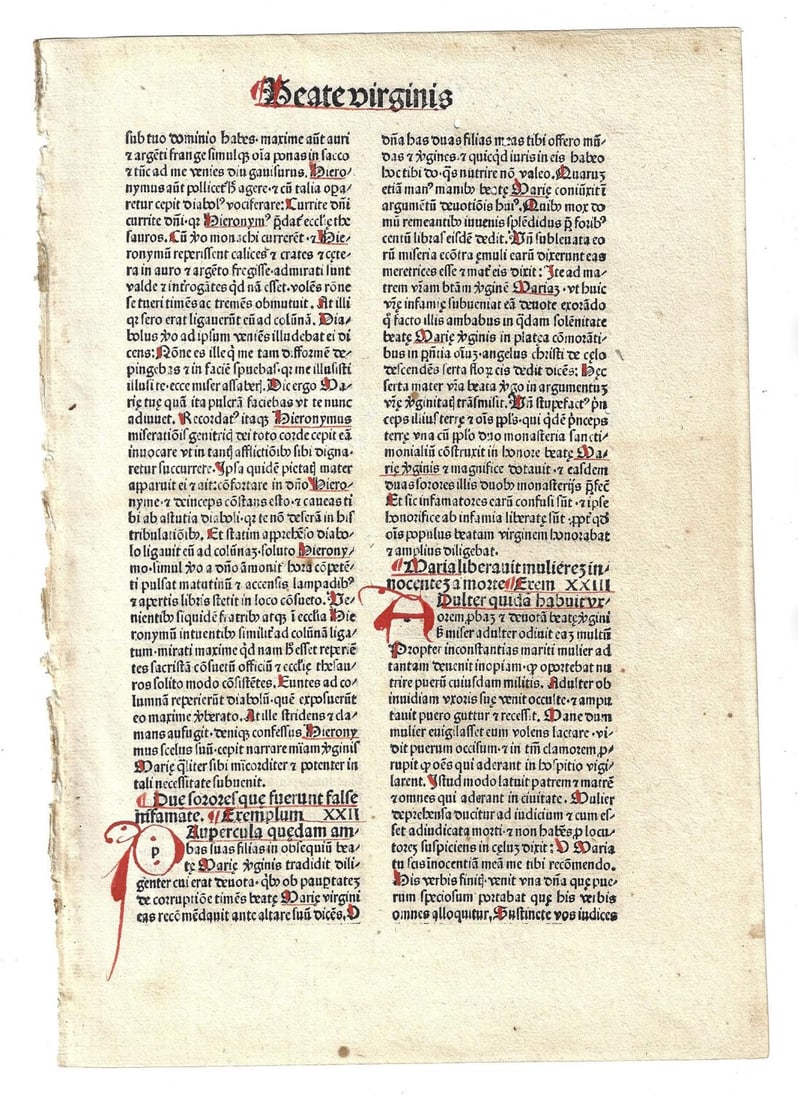 Beate virginis
sub tuo dominio habes. maxime aūt auri
⁊ argēti frange simulqꝫ oīa ponas in sacco
⁊ tūc ad me venies diu gauisurus. Hiero⸗
nymus aūt pollicet᷑ hͦ agere. ⁊ cū talia opa⸗
retur cepit diabolꝰ vociferare: Currite dn̄i
currite dn̄i. qꝛ Hieronymꝰ p̄dat᷑ ecclīe the
sauros. Cū ꝟo monachi currerēt. ⁊ Hie⸗
ronymū reperissent calices ⁊ crates ⁊ cęte⸗
ra in auro ⁊ argēto fregisse. admirati sunt
valde ⁊ intrōgātes qd nā esset. volēs rōne
se tueri timēs ac tremēs obmutuit. At illi
qꝛ sero erat ligauerūt eū ad colūnā. Dia⸗
bolus ꝟo ad ipsum veniēs illudebat ei di
cens: Nōne es ille q̇ me tam difformē de⸗
pingebas ⁊ in faciē spuebas. qꝛ me illusisti
illusi te. ecce miser assaberꝭ. Dic ergo Ma⸗
rię tuę quā ita pulcrā faciebas vt te nunc
adiuuet. Recordatꝰ itaqꝫ Hieronymus
miseratiōis genitricꝭ dei toto corde cepit eā
inuocare vt in tantꝭ afflictiōibꝰ sibi digna⸗
retur succurrere. Ipsa quidē pietatꝭ mater
apparuit ei ⁊ ait: cōfortare in dn̄o Hiero⸗
nyme. ⁊ deinceps cōstans esto. ⁊ caueas ti
bi ab astutia diaboli. qꝛ te nō deserā in his
tribulatiōibꝰ. Et statim apprehēso diabo⸗
lo ligauit eū ad colūnaꝫ. soluto Hierony⸗
mo. simul ꝟo a dn̄o āmonit᷑ hora cōpetē⸗
ti pulsat matutinū ⁊ accensis lampadibꝰ
⁊ apertis libris stetit in loco cōsueto. Ve⸗
nientibꝰ siquidē fratribꝰ atqꝫ ī ecclīa Hie
ronymū intuentibꝰ similit᷑ ad colūnā liga⸗
tum. mirati maxime qd nam hͦ esset reperiē
tes sacristā cōsuetū officiū ⁊ ecclīę thesau⸗
ros solito modo cōsistētes. Euntes ad co⸗
lumnā reperierūt diabolū. quē exposuerūt
eo maxime ꝟberato. At ille stridens ⁊ cla⸗
mans aufugit. denique confessus Hierony
mus scelus suū. cepit narrare mīam ꝟginis
Marię q̇liter sibi mīcorditer ⁊ potenter in
tali necessitate subuenit.
Due sorores que fuerunt false
infamate. Exemplum XXII
PAupercula quędam am⸗
bas suas filias in obsequiū bea⸗
tę Marię ꝟginis tradidit dili⸗
genter cui erat deuota. q̇bꝰ ob paupt̄ateꝫ
de corruptiōe timēs beatę Marię virgini
eas recōmēdauit ante altare suū dicēs. O
dn̄a has duas filias meas tibi offero mū⸗
das ⁊ ꝟgines. ⁊ quicq̇d iuris in eis habeo
hoc tibi do. q̇s nutrire nō valeo. Quaruꝫ
etiā manꝰ manibꝰ beatę Marię coniūxit ī
argumētū deuotiōis huiꝰ. Quibꝰ mox do
mū remeantibꝰ iuuenis splēdidus p̄ foribꝰ
centū libras eisdē dedit. Vn̄ subleuata eo
rū miseria ecōtra ęmuli earū dixerunt eas
meretrices esse ⁊ mat᷑ eis dixit: Ite ad ma⸗
trem vr̄am btām ꝟginē Mariaꝫ. vt huic
vr̄ę infamię subueniat eā deuote exorādo
ꝙ̄ facto illis ambabus in q̇dam solēnitate
beatę Marię ꝟginis in platea cōmorāti⸗
bus in pn̄tia oīuꝫ. angelus christi de cęlo
descendēs serta floꝝ eis dedit dicēs: Hęc
serta mater vr̄a beata ꝟgo in argumentuꝫ
vr̄ę ꝟginitatꝭ trāsmisit. Vn̄ stupefactꝰ prin
ceps illius terrę ⁊ oēs ppl̄s. qui q̇dē princeps
terrę vna cū ppl̄o dn̄o monasteria sancti⸗
monialiū cōstruxit in honore beatę Ma⸗
rię ꝟginis ⁊ magnifice dotauit. ⁊ easdem
duas sorores illis duobꝰ monasterijs p̄fec̄
Et sic infamatores earū confusi sūt. ⁊ ipse
honorifice ab infamia liberatę sūt. ꝓpt᷑ qd̄
oīs populus beatam virginem honorabat
⁊ amplius diligebat.
Maria liberauit mulierez in⸗
nocentez a morte Exem XXIII
ADulter quidā habuit vx⸗
orem ꝓbaꝫ ⁊ deuotā beatę ꝟgini
hͦ miser adulter odiuit eaꝫ multū
Propter inconstantias mariti mulier ad
tantam deuenit inopiam. ꝙ oportebat nu
trire puerū cuiusdam militis. Adulter ob
inuidiam vxoris suę venit occulte. ⁊ ampu
tauit puero guttur ⁊ recessit. Mane dum
mulier euigilasset eum volens lactare. vi⸗
dit puerum occisum. ⁊ in tm̄ clamorem ꝓ⸗
rupit ꝙ oēs qui aderant in hospitio vigi⸗
larent. Istud modo latuit patrem ⁊ matrē
⁊ omnes qui aderant in ciuitate. Mulier
deprehensa ducitur ad iudicium ⁊ cum es⸗
set adiudicata morti. ⁊ non habēs ꝓlocu⸗
torez suspiciens in cęluꝫ dixit: O Maria
tu scis īnocentiā meā me tibi recōmendo.
His verbis finitꝭ. venit vna dn̄a quę pue⸗
rum speciosum portabat quę his ꝟbis
omnes alloquitur. Sustinete vos iudices